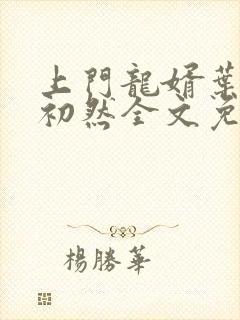 上門龍婿葉
初然全文免
楊勝華